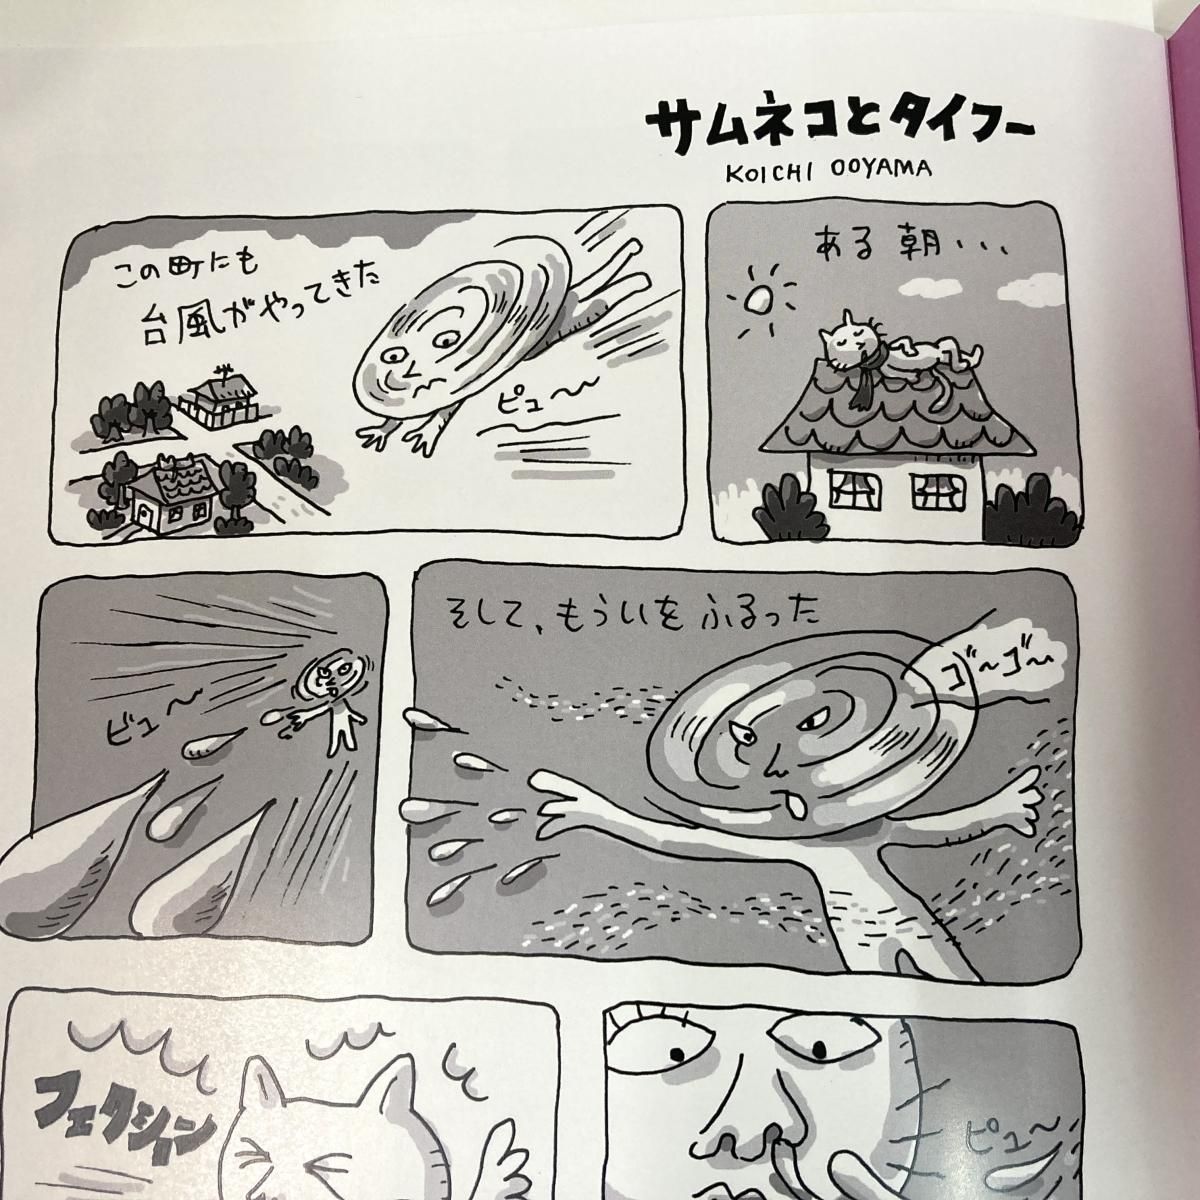 サムネコとタイフー
KOICHI OOYAMA
ある朝・・・
この町にも
台風がやってきた
ピュー〜
そして、もういをふるった
ゴ〜ゴ〜
ビュ〜
ピュ〜
フェクション